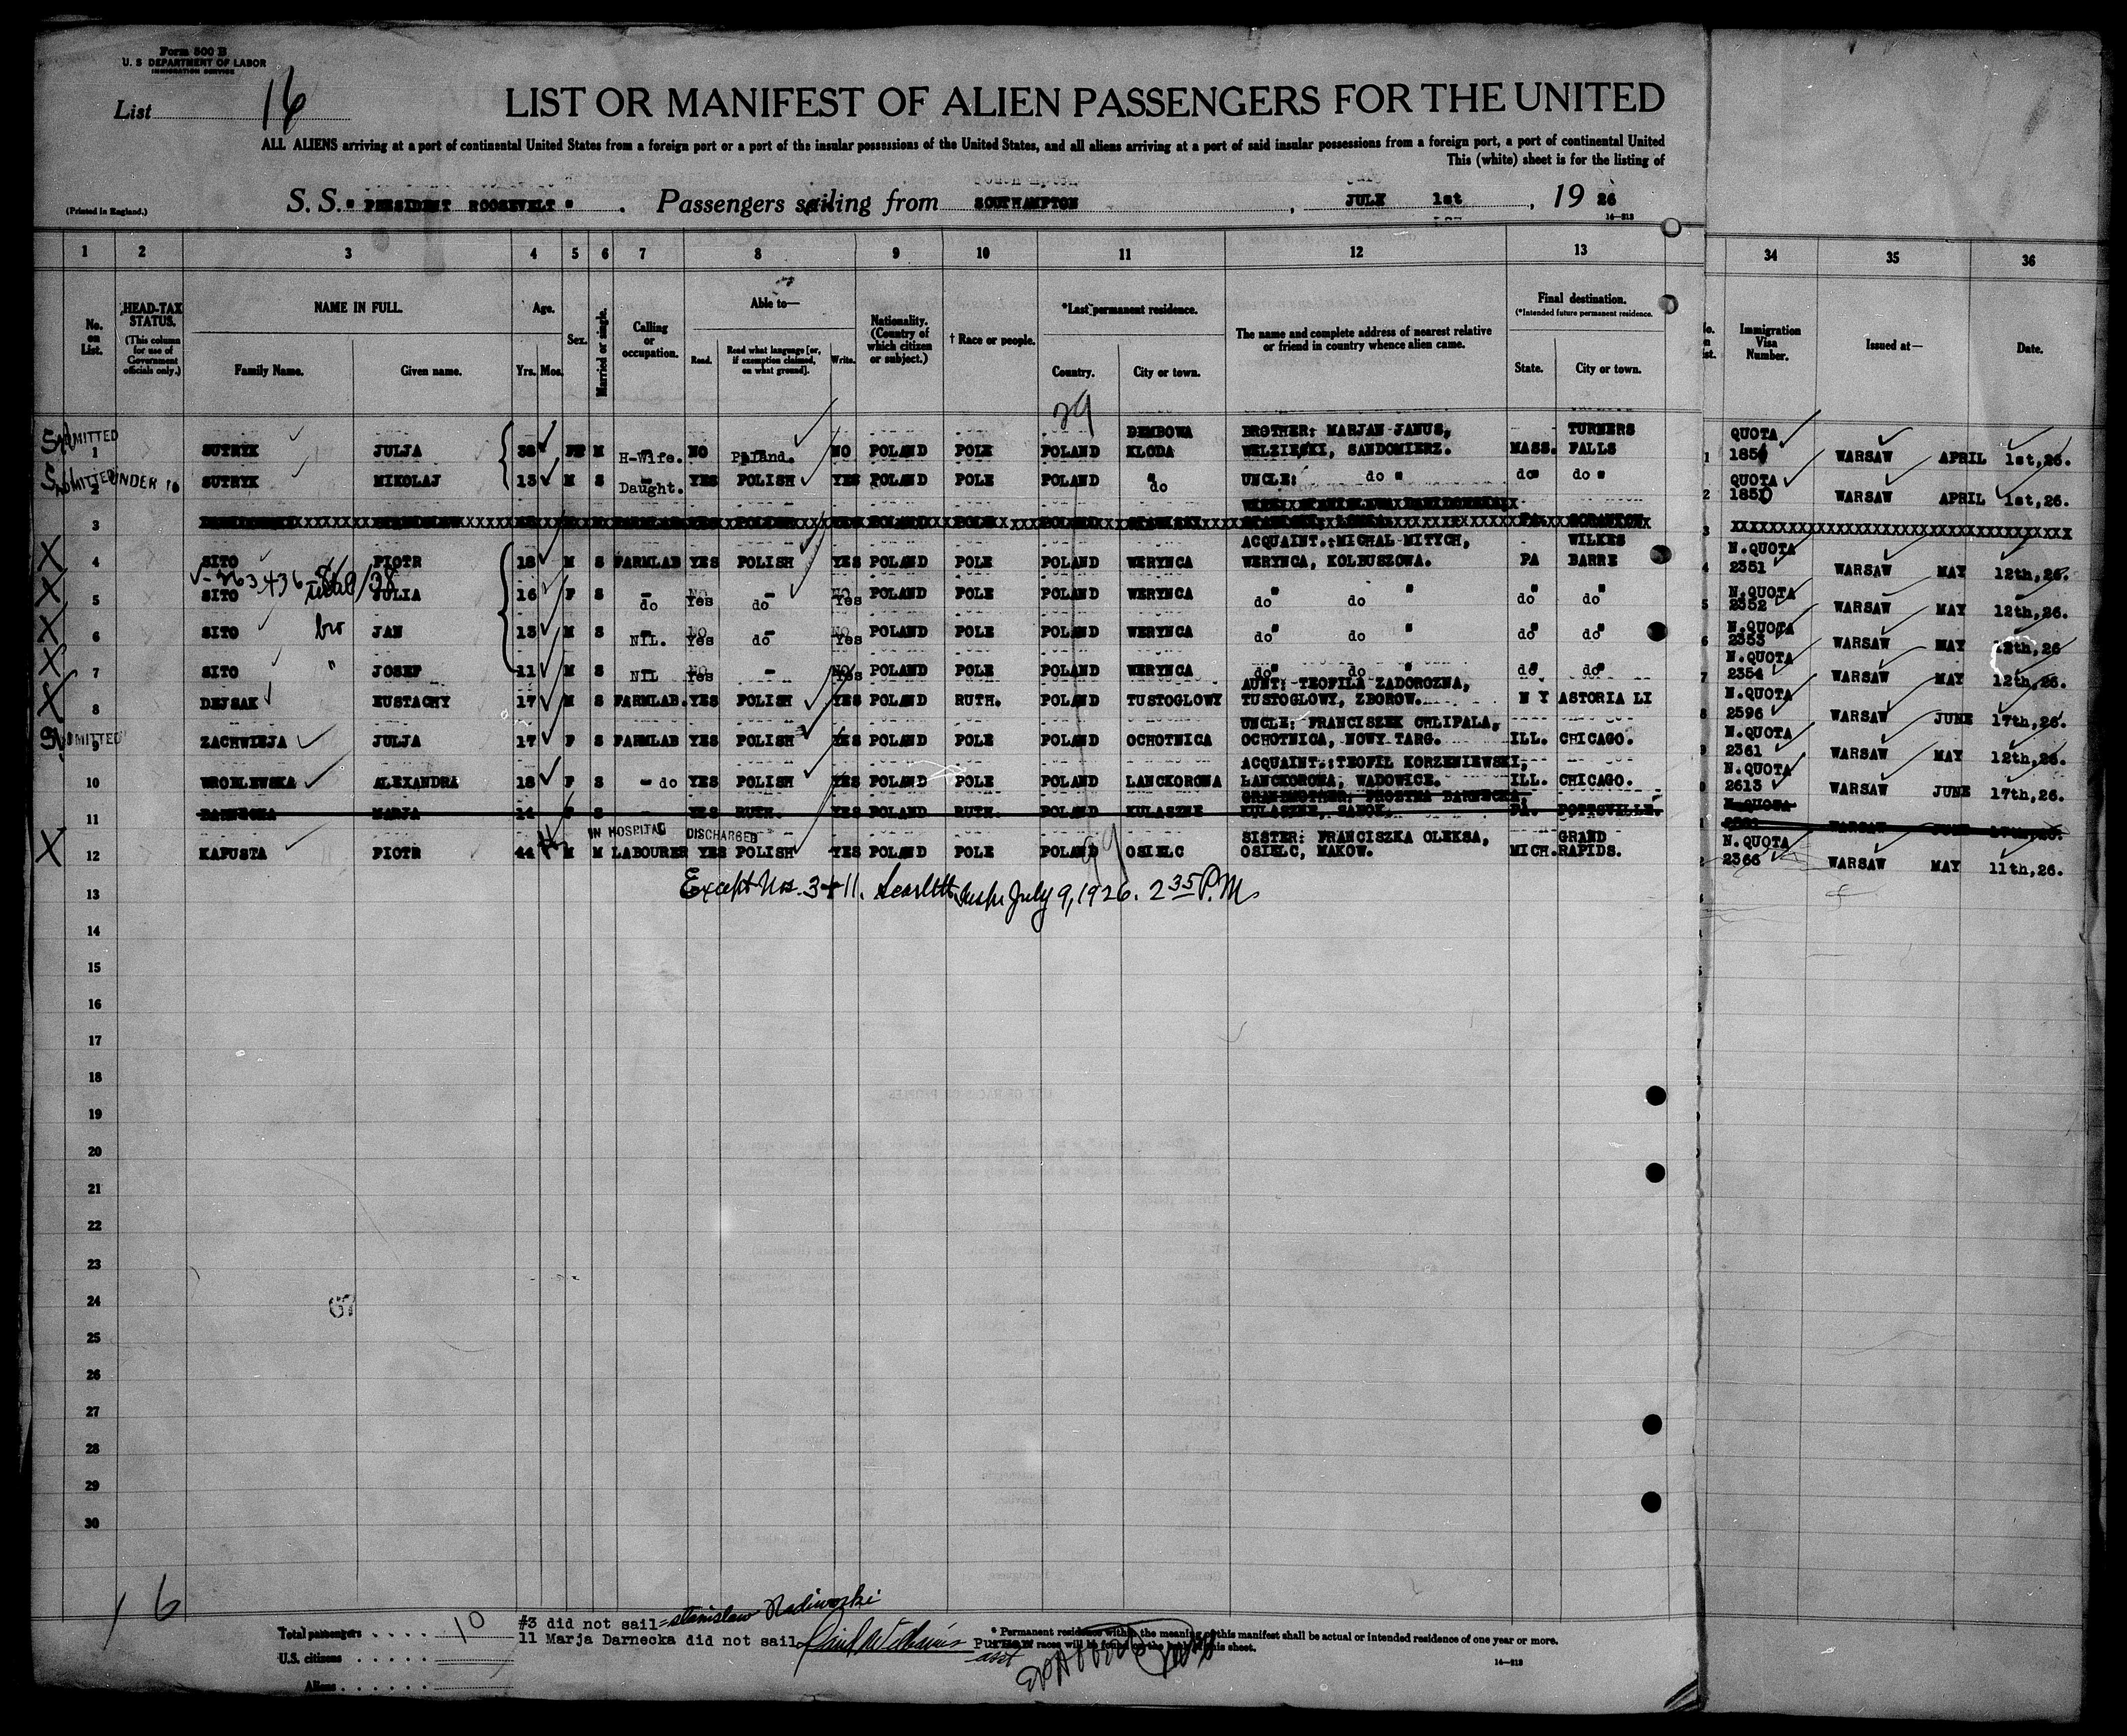 Form 500 B
U. S DEPARTMENT OF LABOR
IMMIGRATION SERVICE
List 16
LIST OR MANIFEST OF ALIEN PASSENGERS FOR THE UNITED
ALL ALIENS arriving at a port of continental United States from a foreign port or a port of the insular possessions of the United States, and all aliens arriving at a port of said insular possessions from a foreign port, a port of continental United
This (white) sheet is for the listing of
(Printed in England.)
S. S. " PRESIDENT ROOSEVELT " . Passengers sailing from SOUTHAMPTON , JULY 1st , 19 26
14—213
1 2 3 4 5 6 7 8 9 10 11 12 13 34 35 36
No. on List.
HEAD-TAX STATUS. (This column for use of Government officials only.)
NAME IN FULL.
Family Name. Given name.
Age. Yrs. Mos.
Sex.
Married or single.
Calling or occupation.
Able to—
Read. Read what language [or, if exemption claimed, on what ground]. Write.
Nationality. (Country of which citizen or subject.)
† Race or people.
*Last permanent residence.
Country. City or town.
The name and complete address of nearest relative or friend in country whence alien came.
Final destination.
(*Intended future permanent residence.
State. City or town.
Immigration Visa Number.
Issued at—
Date.
29
ADMITTED DEMBOWA BROTHER: MARJAN JANUS, TURNERS QUOTA
1 SUTRYK JULJA 38 F M H-Wife. NO Poland. NO POLAND POLE POLAND KLODA WELZIESKI, SANDOMIERZ. MASS. FALLS 1 185 WARSAW APRIL 1st,26.
ADMITTED UNDER 16 QUOTA
2 SUTRYK MIKOLAJ 13 M S Daught. YES POLISH YES POLAND POLE POLAND do UNCLE: do " do" do " 2 185 WARSAW APRIL 1st,26.
3 POLAND POLE POLAND PA. SCRANTON 3 XXXXXXXXXXXXXXXXXXXXXXXXXXXXXXXX
ACQUAINT.:MICHAL MITYCH, WILKES N.QUOTA
4 SITO PIOTR 18 M S FARMLAB YES POLISH YES POLAND POLE POLAND WERYNCA WERYNCA, KOLBUSZOWA. PA BARRE 4 2351 WARSAW MAY 12th,26.
N.QUOTA
5 SITO JULIA 16 F S do Yes do Yes POLAND POLE POLAND WERYNCA do" do " do" do" 5 2352 WARSAW MAY 12th,26.
N.QUOTA
6 SITO bro JAN 13 M S NIL. Yes do Yes POLAND POLE POLAND WERYNCA do" do " do" do" 6 2353 WARSAW MAY 12th,26
N.QUOTA
7 SITO " JOSEF 11 M S NIL Yes - Yes POLAND POLE POLAND WERYNCA do" do " do" do" 7 2354 WARSAW MAY 12th,26.
AUNT: TEOFILA ZADOROZNA, N.QUOTA
8 DEJSAK EUSTACHY 17 M S FARMLAB. YES POLISH YES POLAND RUTH. POLAND TUSTOGLOWY TUSTOGLOWY, ZBOROW. N Y ASTORIA LI 8 2596 WARSAW JUNE 17th,26.
ADMITTED UNCLE: FRANCISZEK CHLIPALA, N.QUOTA
9 ZACHWIEJA JULJA 17 F S FARMLAB YES POLISH YES POLAND POLE POLAND OCHOTNICA OCHOTNICA, NOWY TARG. ILL. CHICAGO. 9 2361 WARSAW MAY 12th,26.
ACQUAINT.:TEOFIL KORZENIEWSKI, N.QUOTA
10 WROBLEWSKA ALEXANDRA 18 F S - do YES POLISH YES POLAND POLE POLAND LANCKORONA LANCKORONA, WADOWICE. ILL. CHICAGO. 2613 WARSAW JUNE 17th,26.
GRANDMOTHER: DARNECKA, N.QUOTA
11 DARNECKA MARJA 14 F S - YES RUTH. YES POLAND RUTH. POLAND KULASZNE KULASZNE, SANOK. PA. POTTSVILLE. WARSAW JUNE 17th,26.
IN HOSPITAL DISCHARGED SISTER: FRANCISZKA OLEKSA, GRAND N.QUOTA
12 KAPUSTA PIOTR 44 M M LABOURER YES POLISH YES POLAND POLE POLAND OSIELC OSIELC, MAKOW. MICH. RAPIDS. 2366 WARSAW MAY 11th,26.
Except Nos. 3+11. July 9, 1926. 2 35 P.M
13
14
15
16
17
18
19
20
21
22
23
24
25
26
27
28
29
30
67
16
Total passengers . . . . 10
U.S. citizens . . . . .
Aliens . . . . . .
#3 did not sail = Stanislaw
11 Marja Darnecka did not sail
asst Purser
* Permanent residence within the meaning of this manifest shall be actual or intended residence of one year or more.
races will be found on the back of this sheet.
14—213